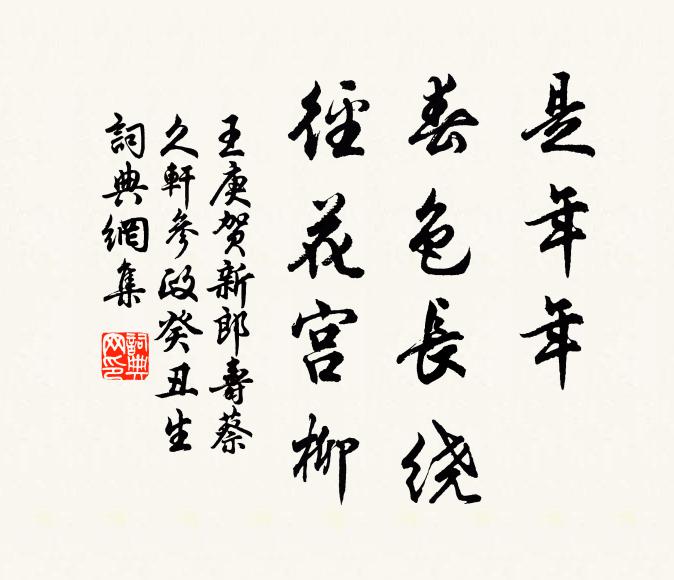 是年年
春色長绕
徑花宫柳
王庚贺新郎壽蔡
久軒參政癸丑生
詞典網集
詞典网印